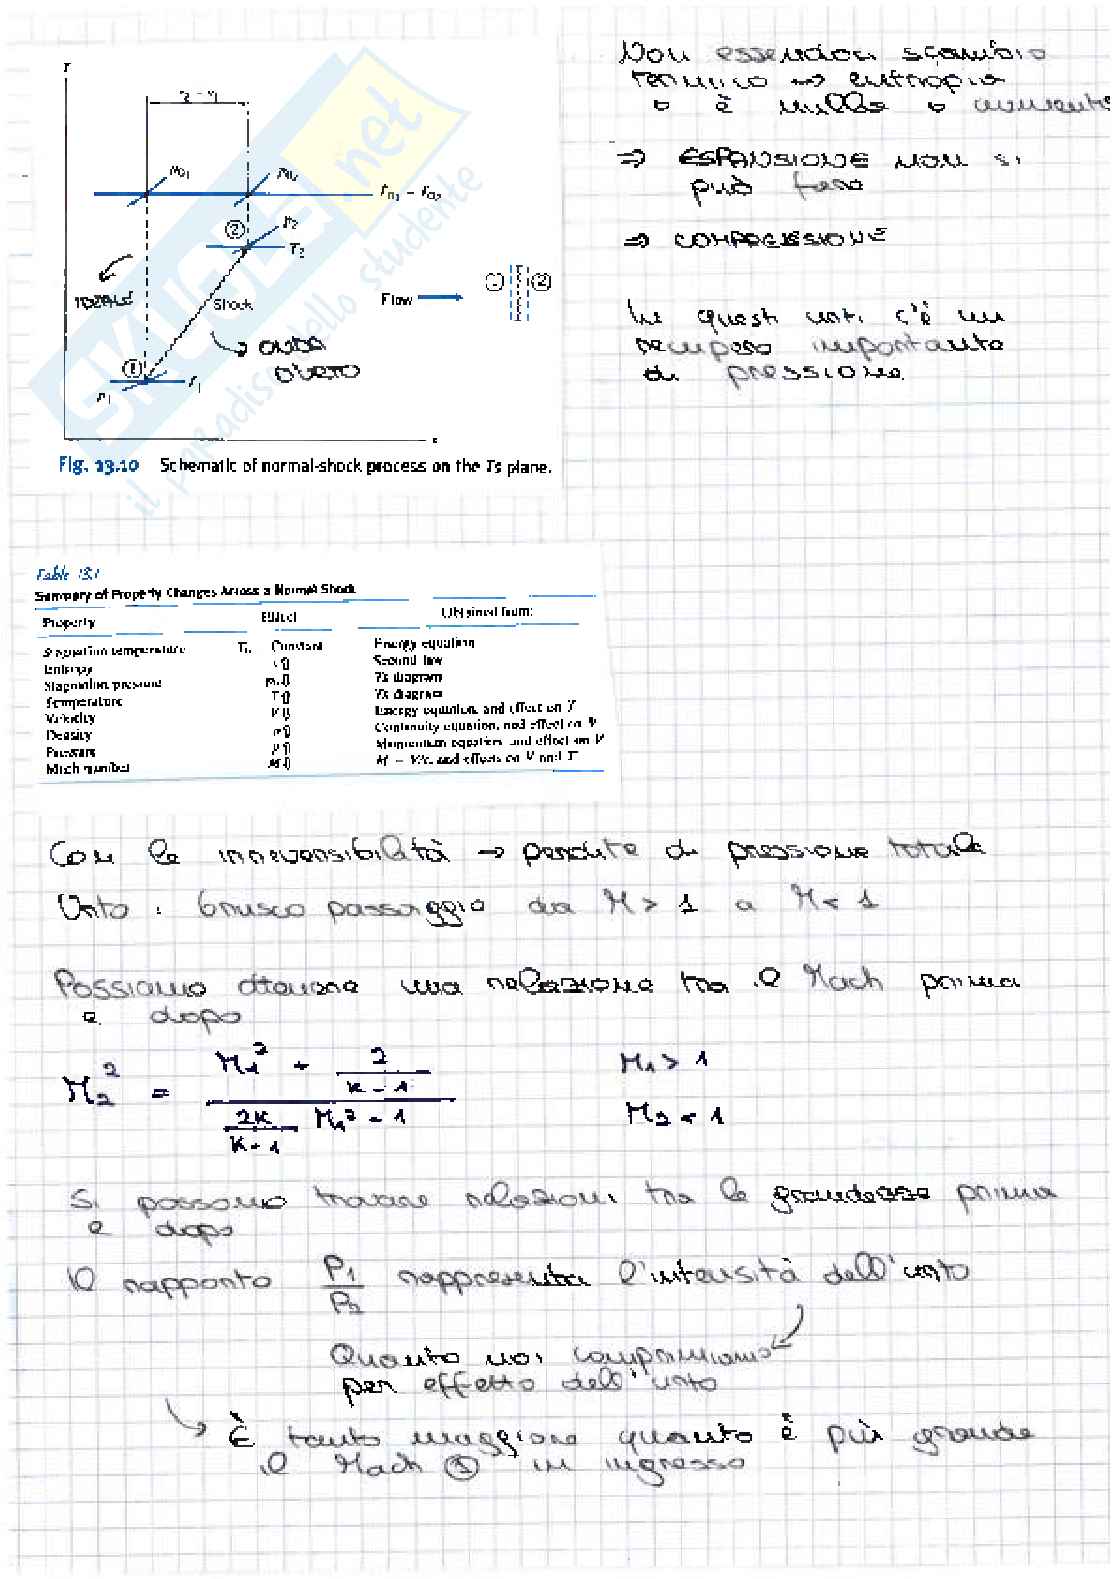 T
Non essendoci scambio
termico → entropia
o è nulla o aumenta
⇒ ESPANSIONE non si
può fare
⇒ COMPRESSIONE
In questi urti c'è un
recupero importante
di pressione.
②
T2
IDEALE
Shock
Flow
① ②
ONDA
D'URTO
①
s
Fig. 13.10 Schematic of normal-shock process on the Ts plane.
SKUOLA.net
il paradiso dello studente
Table 13.1
Summary of Property Changes Across a Normal Shock
Property Effect Obtained from:
Stagnation temperature T0 Constant Energy equation
Entropy s⇑ Second law
Stagnation pressure p0⇓ Ts diagram
Temperature T⇑ Ts diagram
Velocity V⇓ Energy equation, and effect on T
Density Continuity equation, and effect on V
Pressure Momentum equation, and effect on V
Mach number M⇓ M = V/c, and effects on V and T
Con le irreversibilità → perdite di pressione totale
Urto : brusco passaggio da M > 1 a M < 1
Possiamo ottenere una relazione tra il Mach prima
e dopo
M2² = (M1² + 2/(k-1)) / (2k/(k-1) M1² - 1)
M1 > 1
M2 < 1
Si possono trovare relazioni tra le grandezze prima
e dopo
Il rapporto P1/P2 rappresenta l'intensità dell'urto
Quanto noi comprimiamo
per effetto dell'urto
È tanto maggiore quanto è più grande
il Mach ① in ingresso